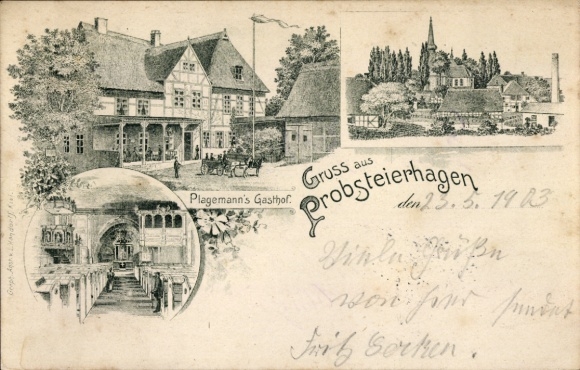 Plagemann's Gasthof.
Gruss aus
Probsteierhagen
den 23.5.1903
Viele Grüße
von hier sendet
Fritz